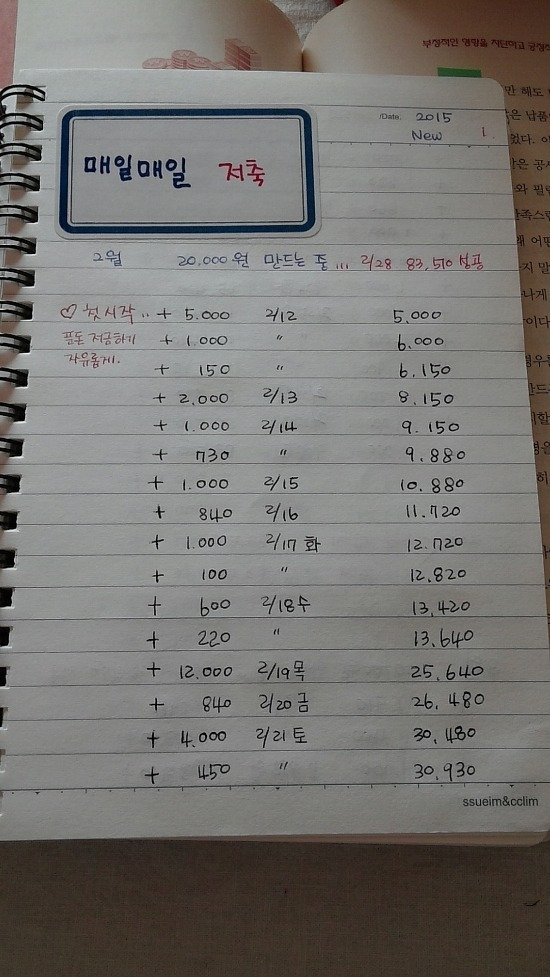 부정적인 영향을 차단하고 긍정적
/Date. 2015
New 1.
매일매일 저축
2월 20,000원 만드는 중... 2/28 83,510 성공
♡ 첫시작.. + 5.000 2/12 5,000
푼돈 저금하기 + 1.000 〃 6.000
자유롭게. + 150 〃 6.150
+ 2,000 2/13 8.150
+ 1.000 2/14 9.150
+ 730 〃 9.880
+ 1.000 2/15 10.880
+ 840 2/16 11.720
+ 1.000 2/17 화 12.720
+ 100 〃 12,820
+ 600 2/18수 13,420
+ 220 〃 13,640
+ 12.000 2/19목 25,640
+ 840 2/20금 26,480
+ 4.000 2/21토 30,480
+ 450 〃 30,930
ssueim&cclim